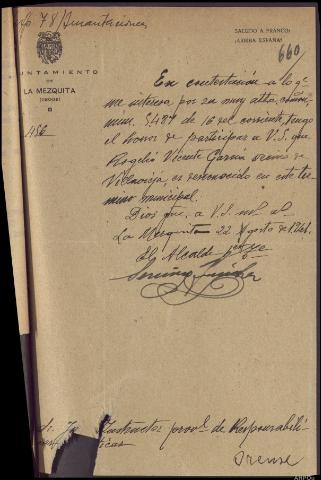 78/
SALUDO A FRANCO:
¡ARRIBA ESPAÑA!
660
AYUNTAMIENTO
DE
LA MEZQUITA
(ORENSE)
456
En contestación a lo q.e
me interesa por su muy atta. comon.
num. 5.487 de 16 del corriente, tengo
el honor de participar a V.S. que
Rogelio Vicente García vecino de
Villavieja, es desconocido en este ter-
mino municipal.
Dios gue. a V.S. ms. as.
La Mezquita 22 Agosto de 1941.
El Alcalde
Sr. Instructor provl. de Responsabili-
Orense